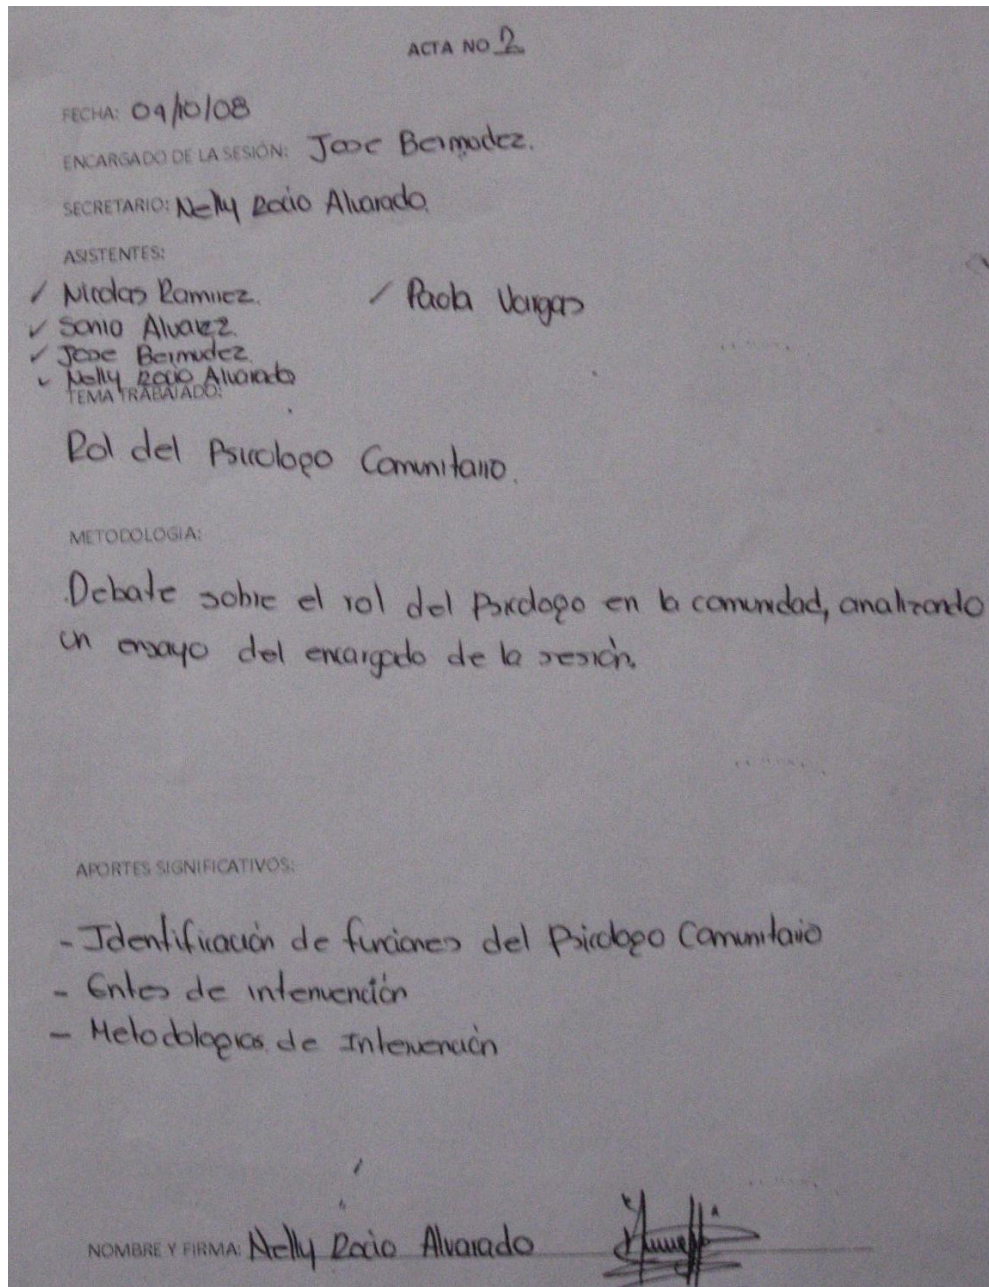 ACTA NO 2
FECHA: 09/10/08
ENCARGADO DE LA SESIÓN: Jose Bermudez.
SECRETARIO: Nelly Rocio Alvarado.
ASISTENTES:
✓ Nicolas Ramirez. ✓ Paola Vargas
✓ Sonia Alvarez.
✓ Jose Bermudez
✓ Nelly Rocio Alvarado
TEMA TRABAJADO:
Rol del Psicologo Comunitario.
METODOLOGIA:
Debate sobre el rol del Psicologo en la comunidad, analizando
un ensayo del encargado de la sesión.
APORTES SIGNIFICATIVOS:
- Identificación de funciones del Psicologo Comunitario
- Entes de intervención
- Metodologias de Intervención
NOMBRE Y FIRMA: Nelly Rocio Alvarado